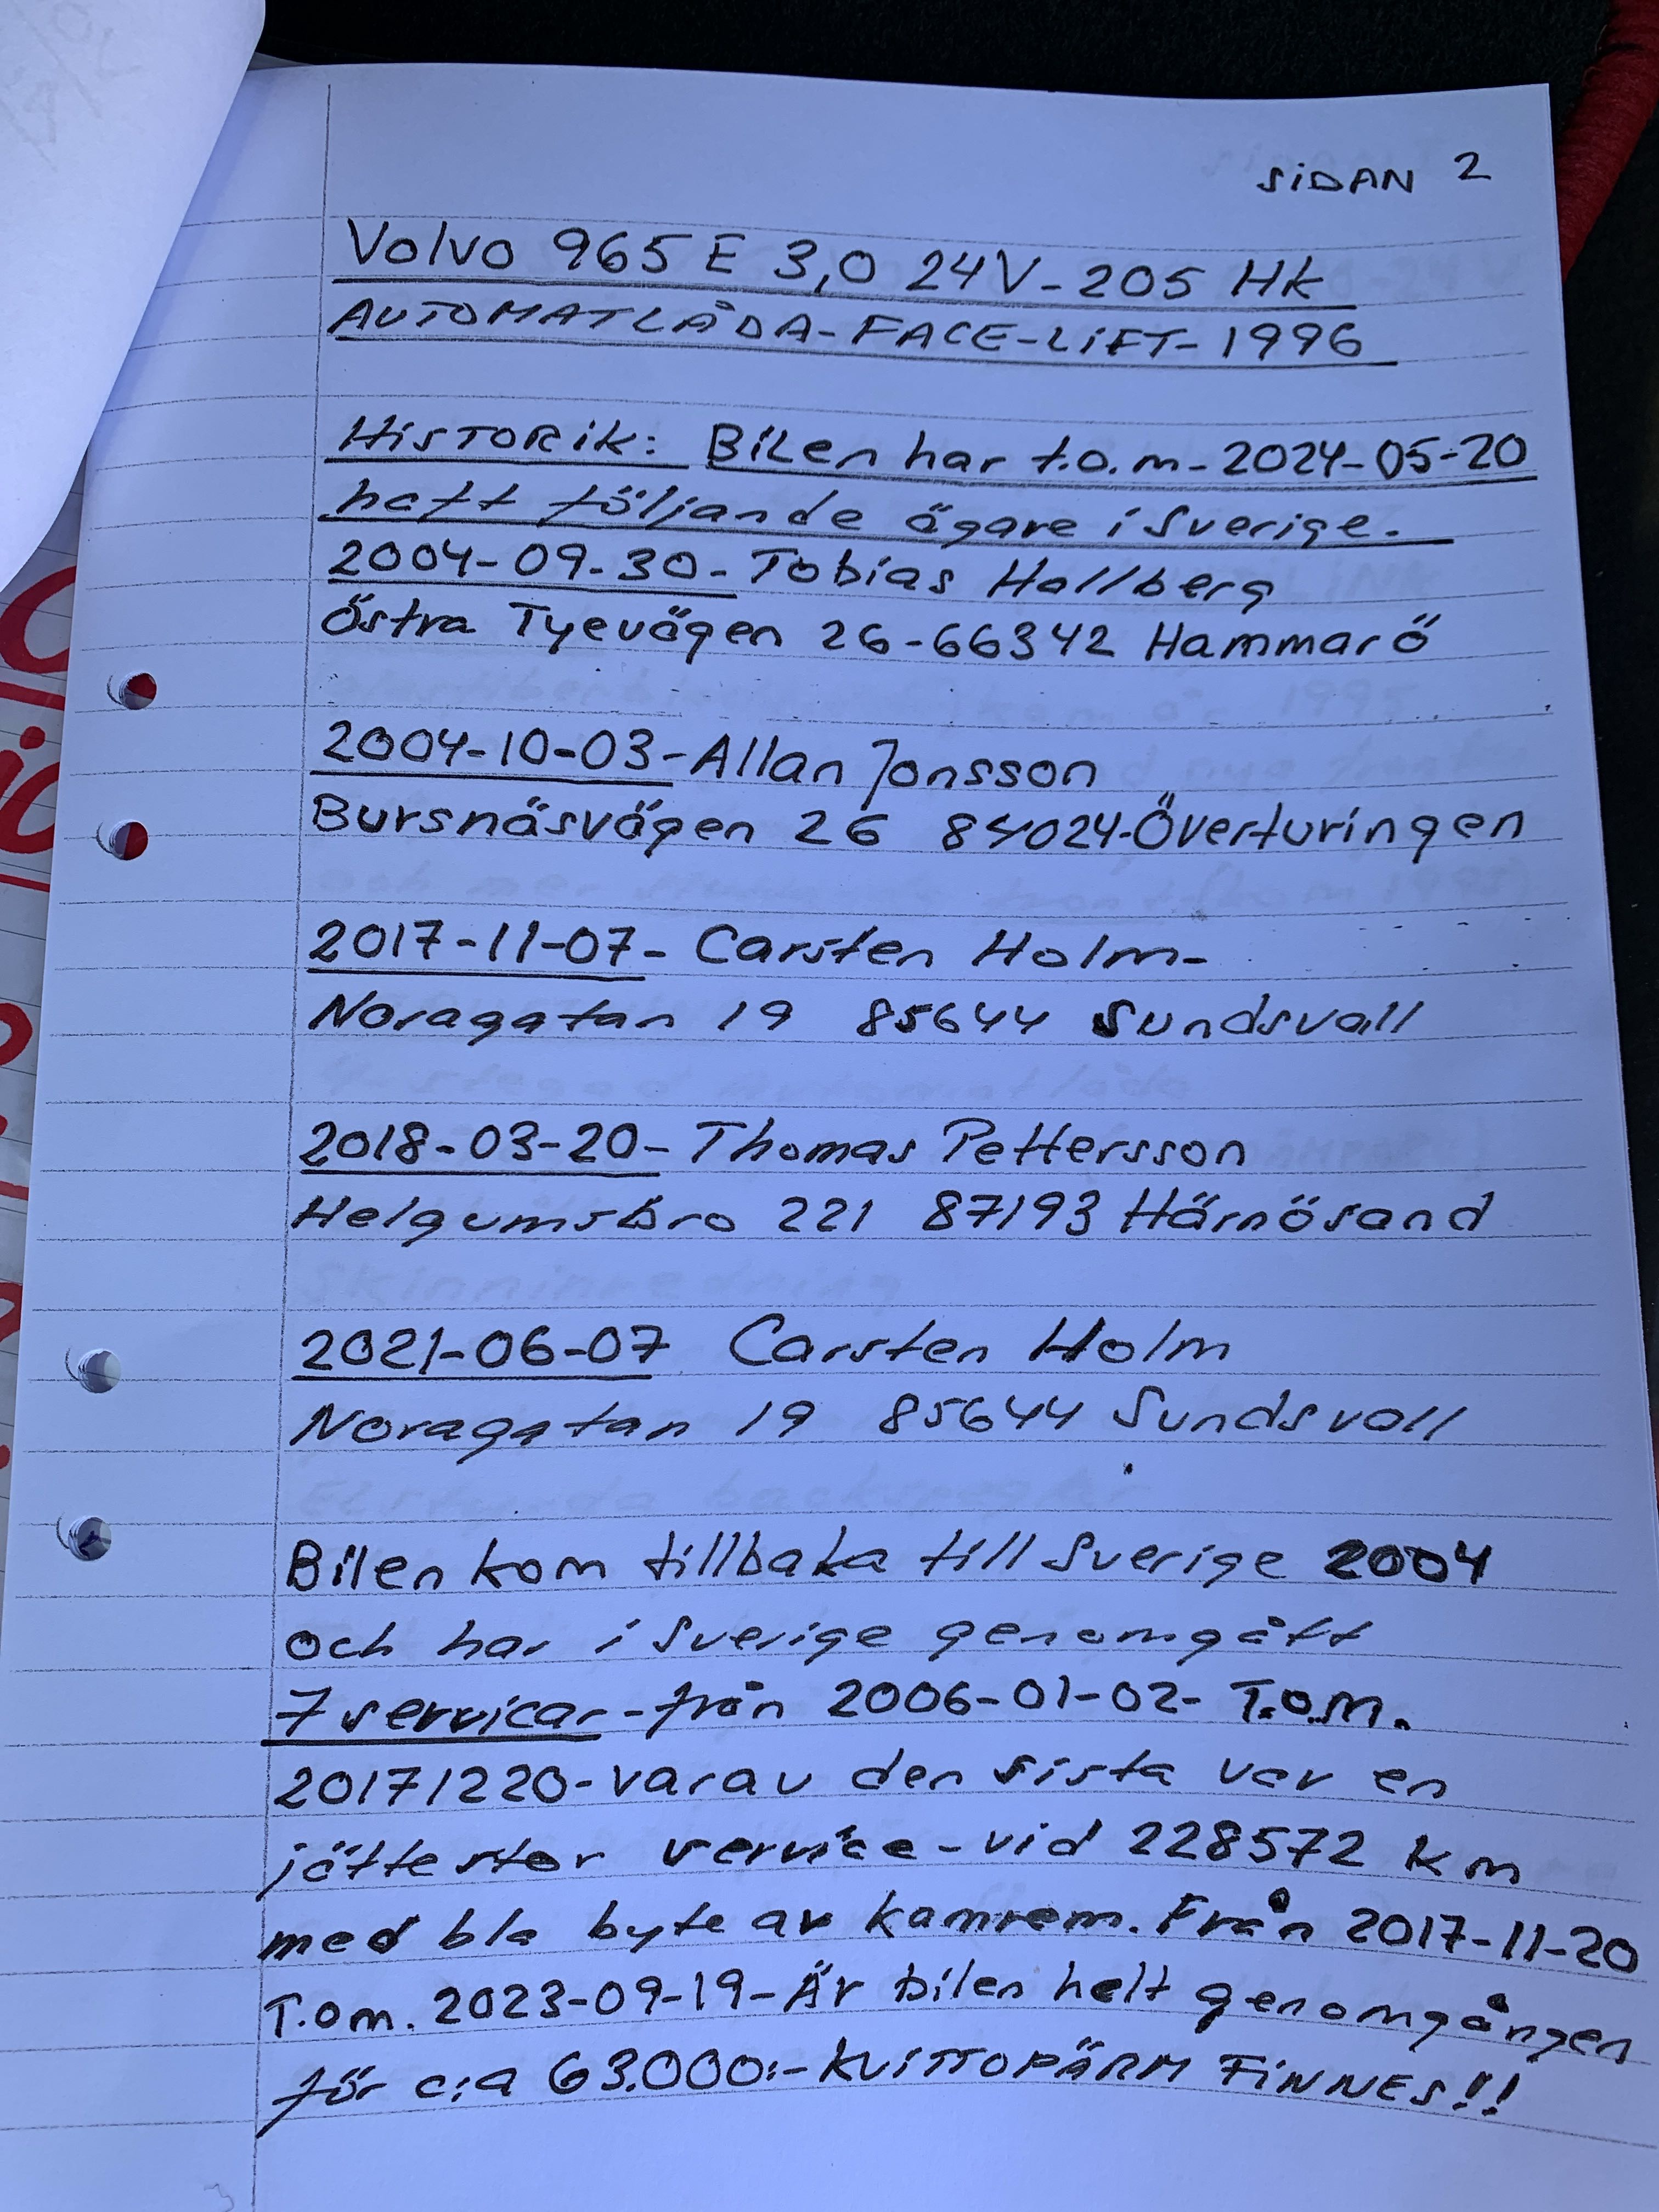 SIDAN 2
Volvo 965 E 3,0 24V-205 Hk
AUTOMATLÅDA-FACE-LIFT-1996
HISTORIK: Bilen har t.o.m-2024-05-20
haft följande ägare i Sverige.
2004-09-30-Tobias Hallberg
Östra Tyevägen 26-66342 Hammarö
2004-10-03-Allan Jonsson
Bursnäsvägen 26 84024-Överturingen
2017-11-07-Carsten Holm-
Noragatan 19 85644 Sundsvall
2018-03-20-Thomas Pettersson
Helgumsbro 221 87193 Härnösand
2021-06-07 Carsten Holm
Noragatan 19 85644 Sundsvall
Bilen kom tillbaka till Sverige 2004
och har i Sverige genomgått
7 servicar-från 2006-01-02-T.o.m.
20171220-varav den sista var en
jättestor service-vid 228572 km
med bla byte av kamrem. Från 2017-11-20
T.om. 2023-09-19-Är bilen helt genomgången
för c:a 63.000:-KVITTOPÄRM FINNES!!